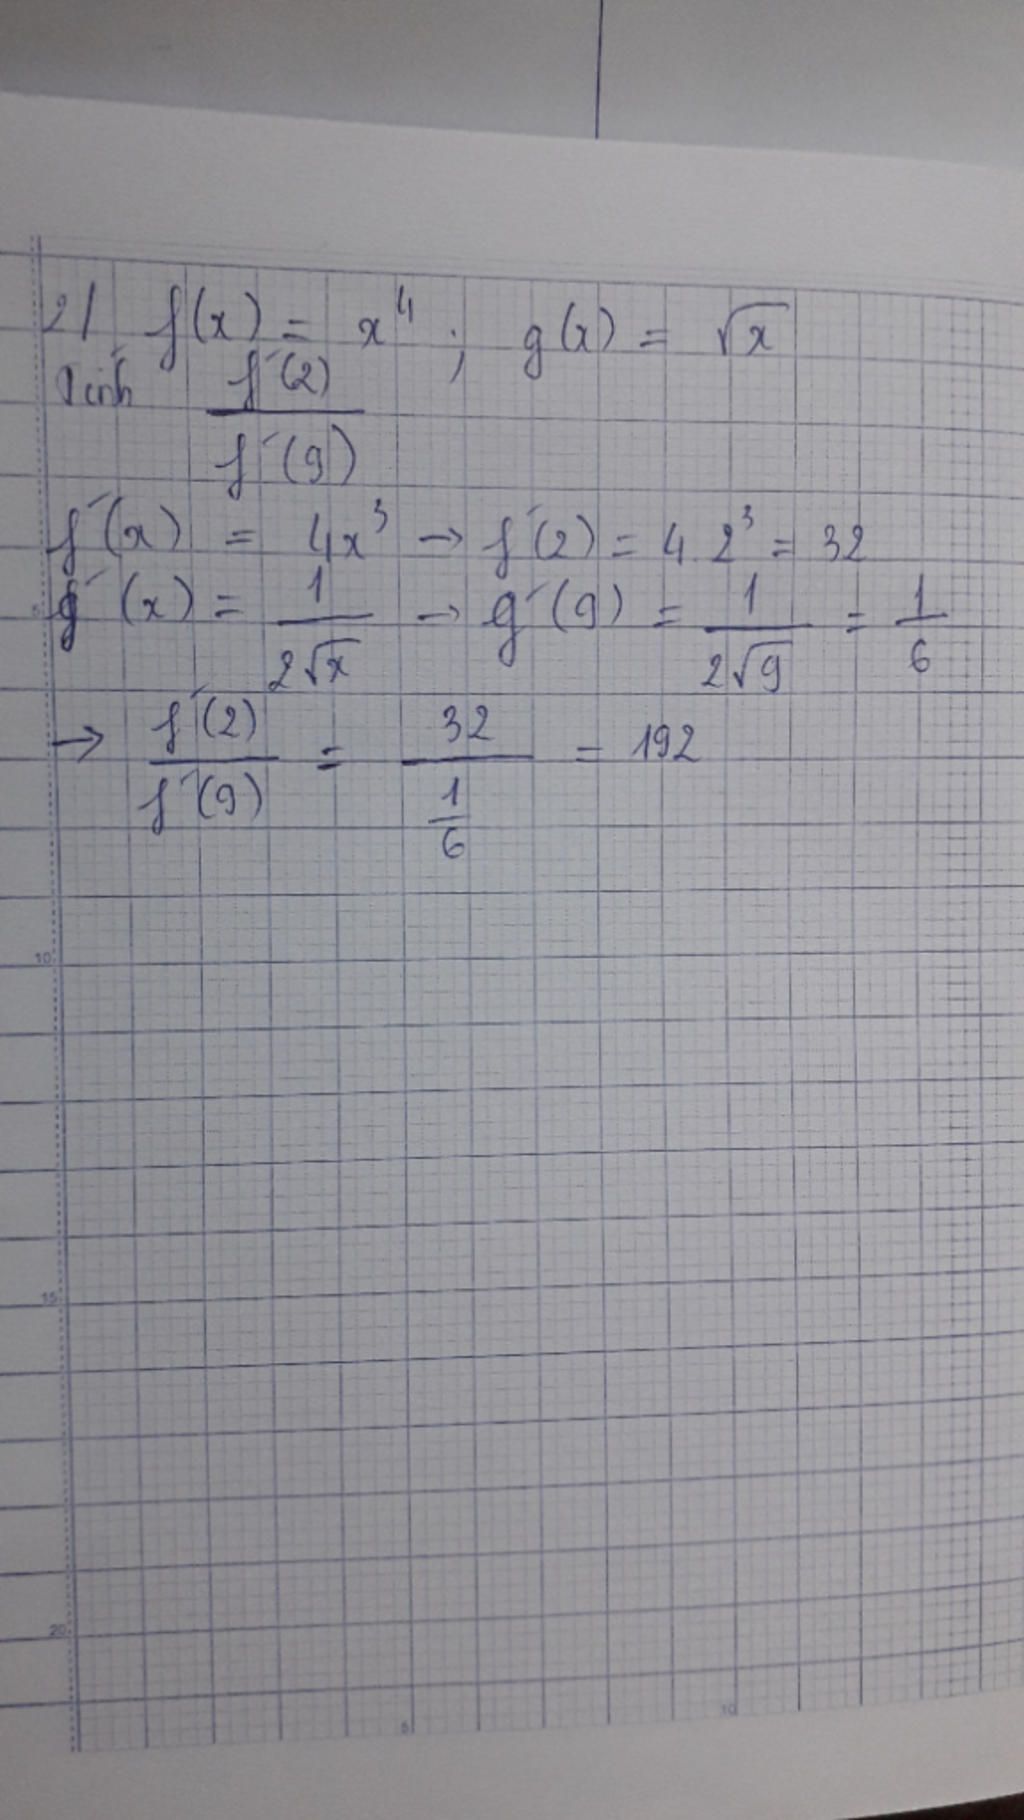 2/ f(x) = x⁴ ; g(x) = √x
Tính f'(2) / f'(9)
f'(x) = 4x³ → f'(2) = 4.2³ = 32
g'(x) = 1/(2√x) → g'(9) = 1/(2√9) = 1/6
→ f'(2)/f'(9) = 32/(1/6) = 192
5
10
15
20
5
10